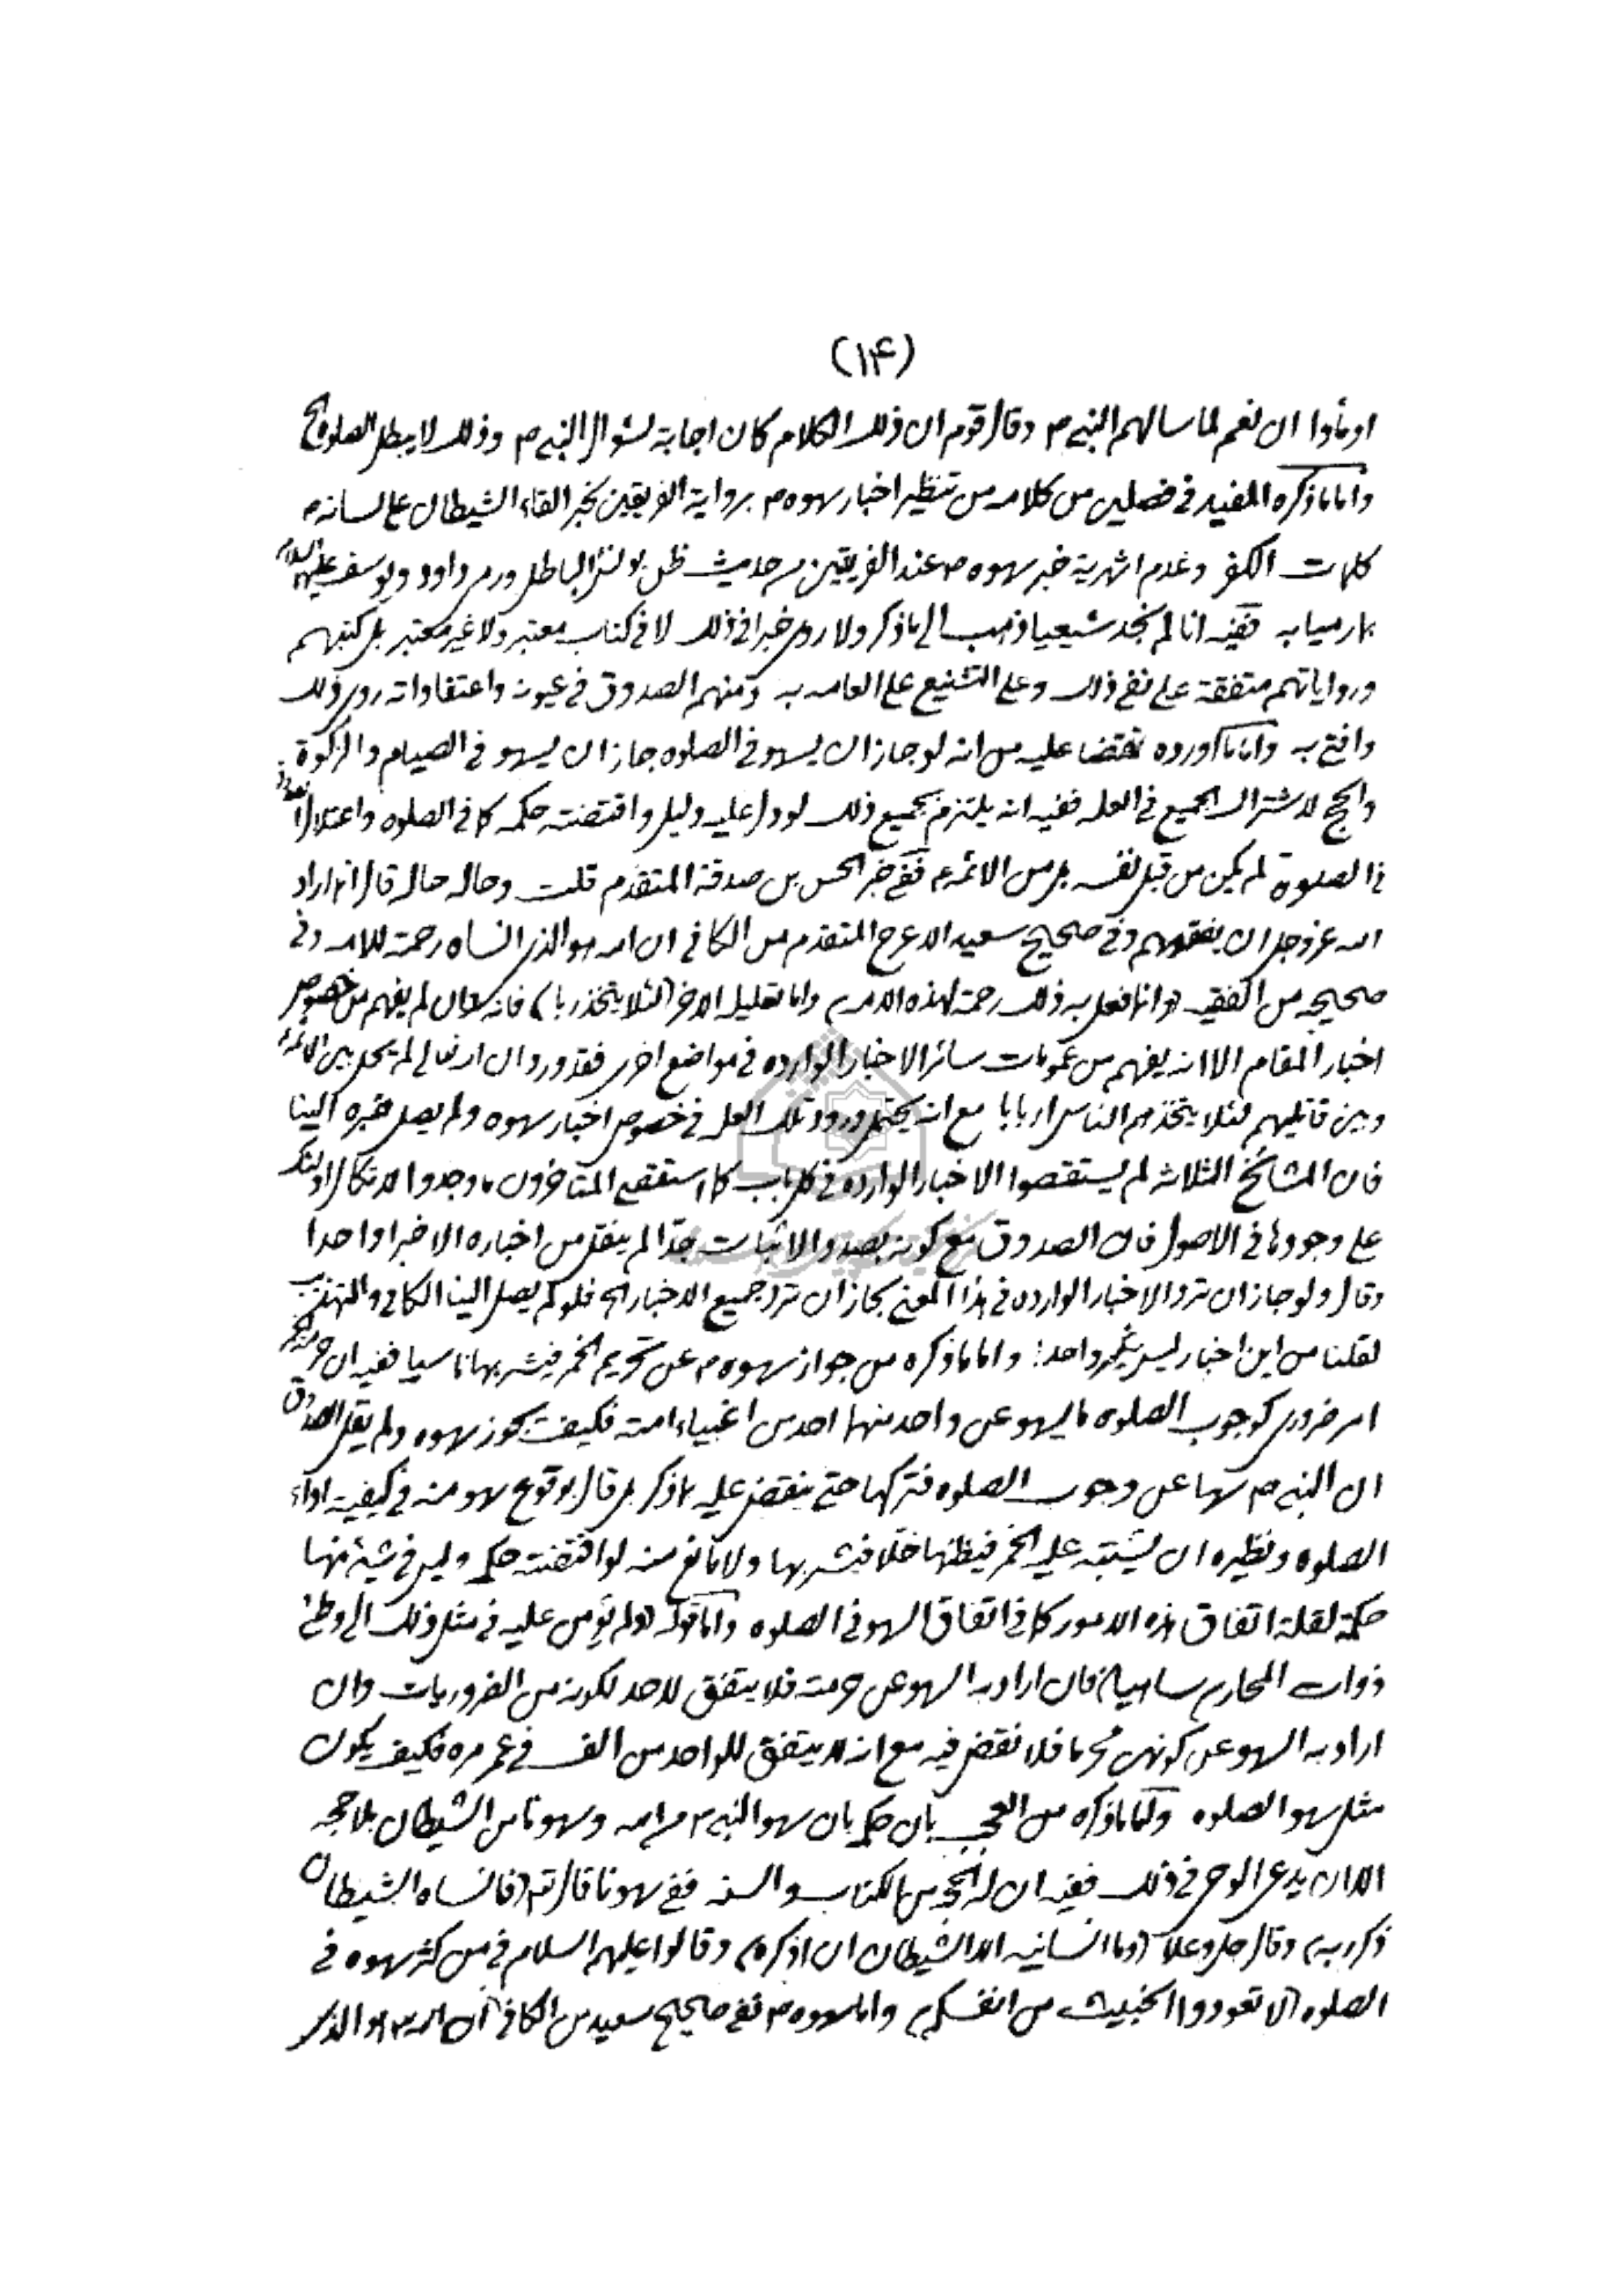 (۱۴)
اومأوا ان نعم لما سالهم النبى ص وقال قوم ان ذلك الكلام كان اجابة لسئوال النبى ص وذلك لا يبطل الصلوة الخ
واما ما ذكره المفيد فى فصلين من كلامه من تنظير اخبار سهوه ص برواية الفريقين لخبر القاء الشيطان على لسانه ص
كلمات الكفر وعدم اشهرية خبر سهوه ص عند الفريقين من حديث ظن يونس الباطل ورمى داود ويوسف عليهم السلام
بما رميا به ففيه انا لم نجد شيعيا ذهب الى ما ذكر ولا روى خبرا فى ذلك لا فى كتاب معتبر ولا غير معتبر بل كتبهم
ورواياتهم متفقة على نفى ذلك وعلى التشنيع على العامه به ومنهم الصدوق فى عيونه واعتقاداته روى ذلك
وافتى به واما ما اورده نقضا عليه من انه لو جاز ان يسهو فى الصلوه جاز ان يسهو فى الصيام والزكوة
والحج لاشتراك الجميع فى العله ففيه انه يلتزم بجميع ذلك لو دل عليه دليل واقتضته حكمه كما فى الصلوه واعتلال
فى الصلوة لم يكن من قبل نفسه بل من الائمة ع ففى خبر الحسن بن صدقة المتقدم قلت وحاله حاله قال انما اراد
الله عز وجل ان يفقههم وفى صحيح سعيد الاعرج المتقدم من الكافى ان الله هو الذى انساه رحمة للامه وفى
صحيحه من الفقيه (وانما فعل به ذلك رحمة لهذه الامه) واما تعليل الاخر (لئلا يتخذ ربا) فانه وان لم يفهم من خصوص
اخبار المقام الا انه يفهم من عمومات سائر الاخبار الوارده فى مواضع اخرى فقد ورد ان الله تعالى لم يحل بين الائمة
وبين قاتليهم لئلا يتخذهم الناس اربابا مع انه يحتمل ورود تلك العله فى خصوص اخبار سهوه ولم يصل خبره الينا
فان المشائخ الثلاثه لم يستقصوا الاخبار الوارده فى كل باب كما استقصى المتاخرون ما وجدوا لاتكال اولئك
على وجودها فى الاصول فان الصدوق مع كونه بصدد الاثبات جدا لم ينقل من اخباره الا خبرا واحدا
وقال ولو جاز ان ترد الاخبار الوارده فى هذا المعنى لجاز ان ترد جميع الاخبار الخ فلو لم يصل الينا الكافى والتهذيب
لقلنا من اين اخبار ليس غير واحد! واما ما ذكره من جواز سهوه ص عن تحريم الخمر فيشربها ناسيا ففيه ان حرمة الخمر
امر ضرورى كوجوب الصلوه ما يسهو عن واحد منهما احد من اغبياء امته فكيف يجوز سهوه ولم يقل الصدوق
ان النبى ص سها عن وجوب الصلوه فتركها حتى ينقض عليه بما ذكر بل قال بوقوع سهو منه فى كيفية اداء
الصلوه ونظيره ان يشتبه عليه الخمر فيظنها خلا فيشربها ولا مانع منه لو اقتضته حكمه وليس فى شيئ منها
حكمة لقلة اتفاق هذه الامور كما فى اتفاق السهو فى الصلوه واما قوله (ولم يؤمن عليه فى مثل ذلك الى وطئ
ذوات المحارم ساهيا) فان اراد به السهو عن حرمته فلا يتفق لاحد لكونه من الضروريات وان
اراد به السهو عن كونهن محرما فلا نقض فيه مع انه لا يتفق للواحد من الف فى عمر مره فكيف يكون
مثل سهو الصلوه واما ما ذكره من العجب بان حكم بان سهو النبى ص من الله وسهونا من الشيطان بلا حجه
الا ان يدعى الوحى فى ذلك ففيه ان له الحجة من الكتاب والسنه ففى سهونا قال تع (فانساه الشيطان
ذكر ربه) وقال جل وعلا (وما انسانيه الا الشيطان ان اذكره) وقالوا عليهم السلام فى من كثر سهوه فى
الصلوه (لا تعودوا الخبيث من انفسكم) واما سهوه ص ففى صحيح سعيد من الكافى ان الله هو الذى